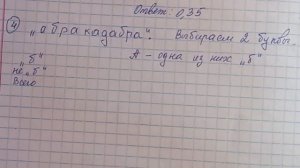 Ответ: 0,35
④ „абракадабра“. Выбираем 2 буквы.
„б“ А – одна из них „б“
не „б“
Всего